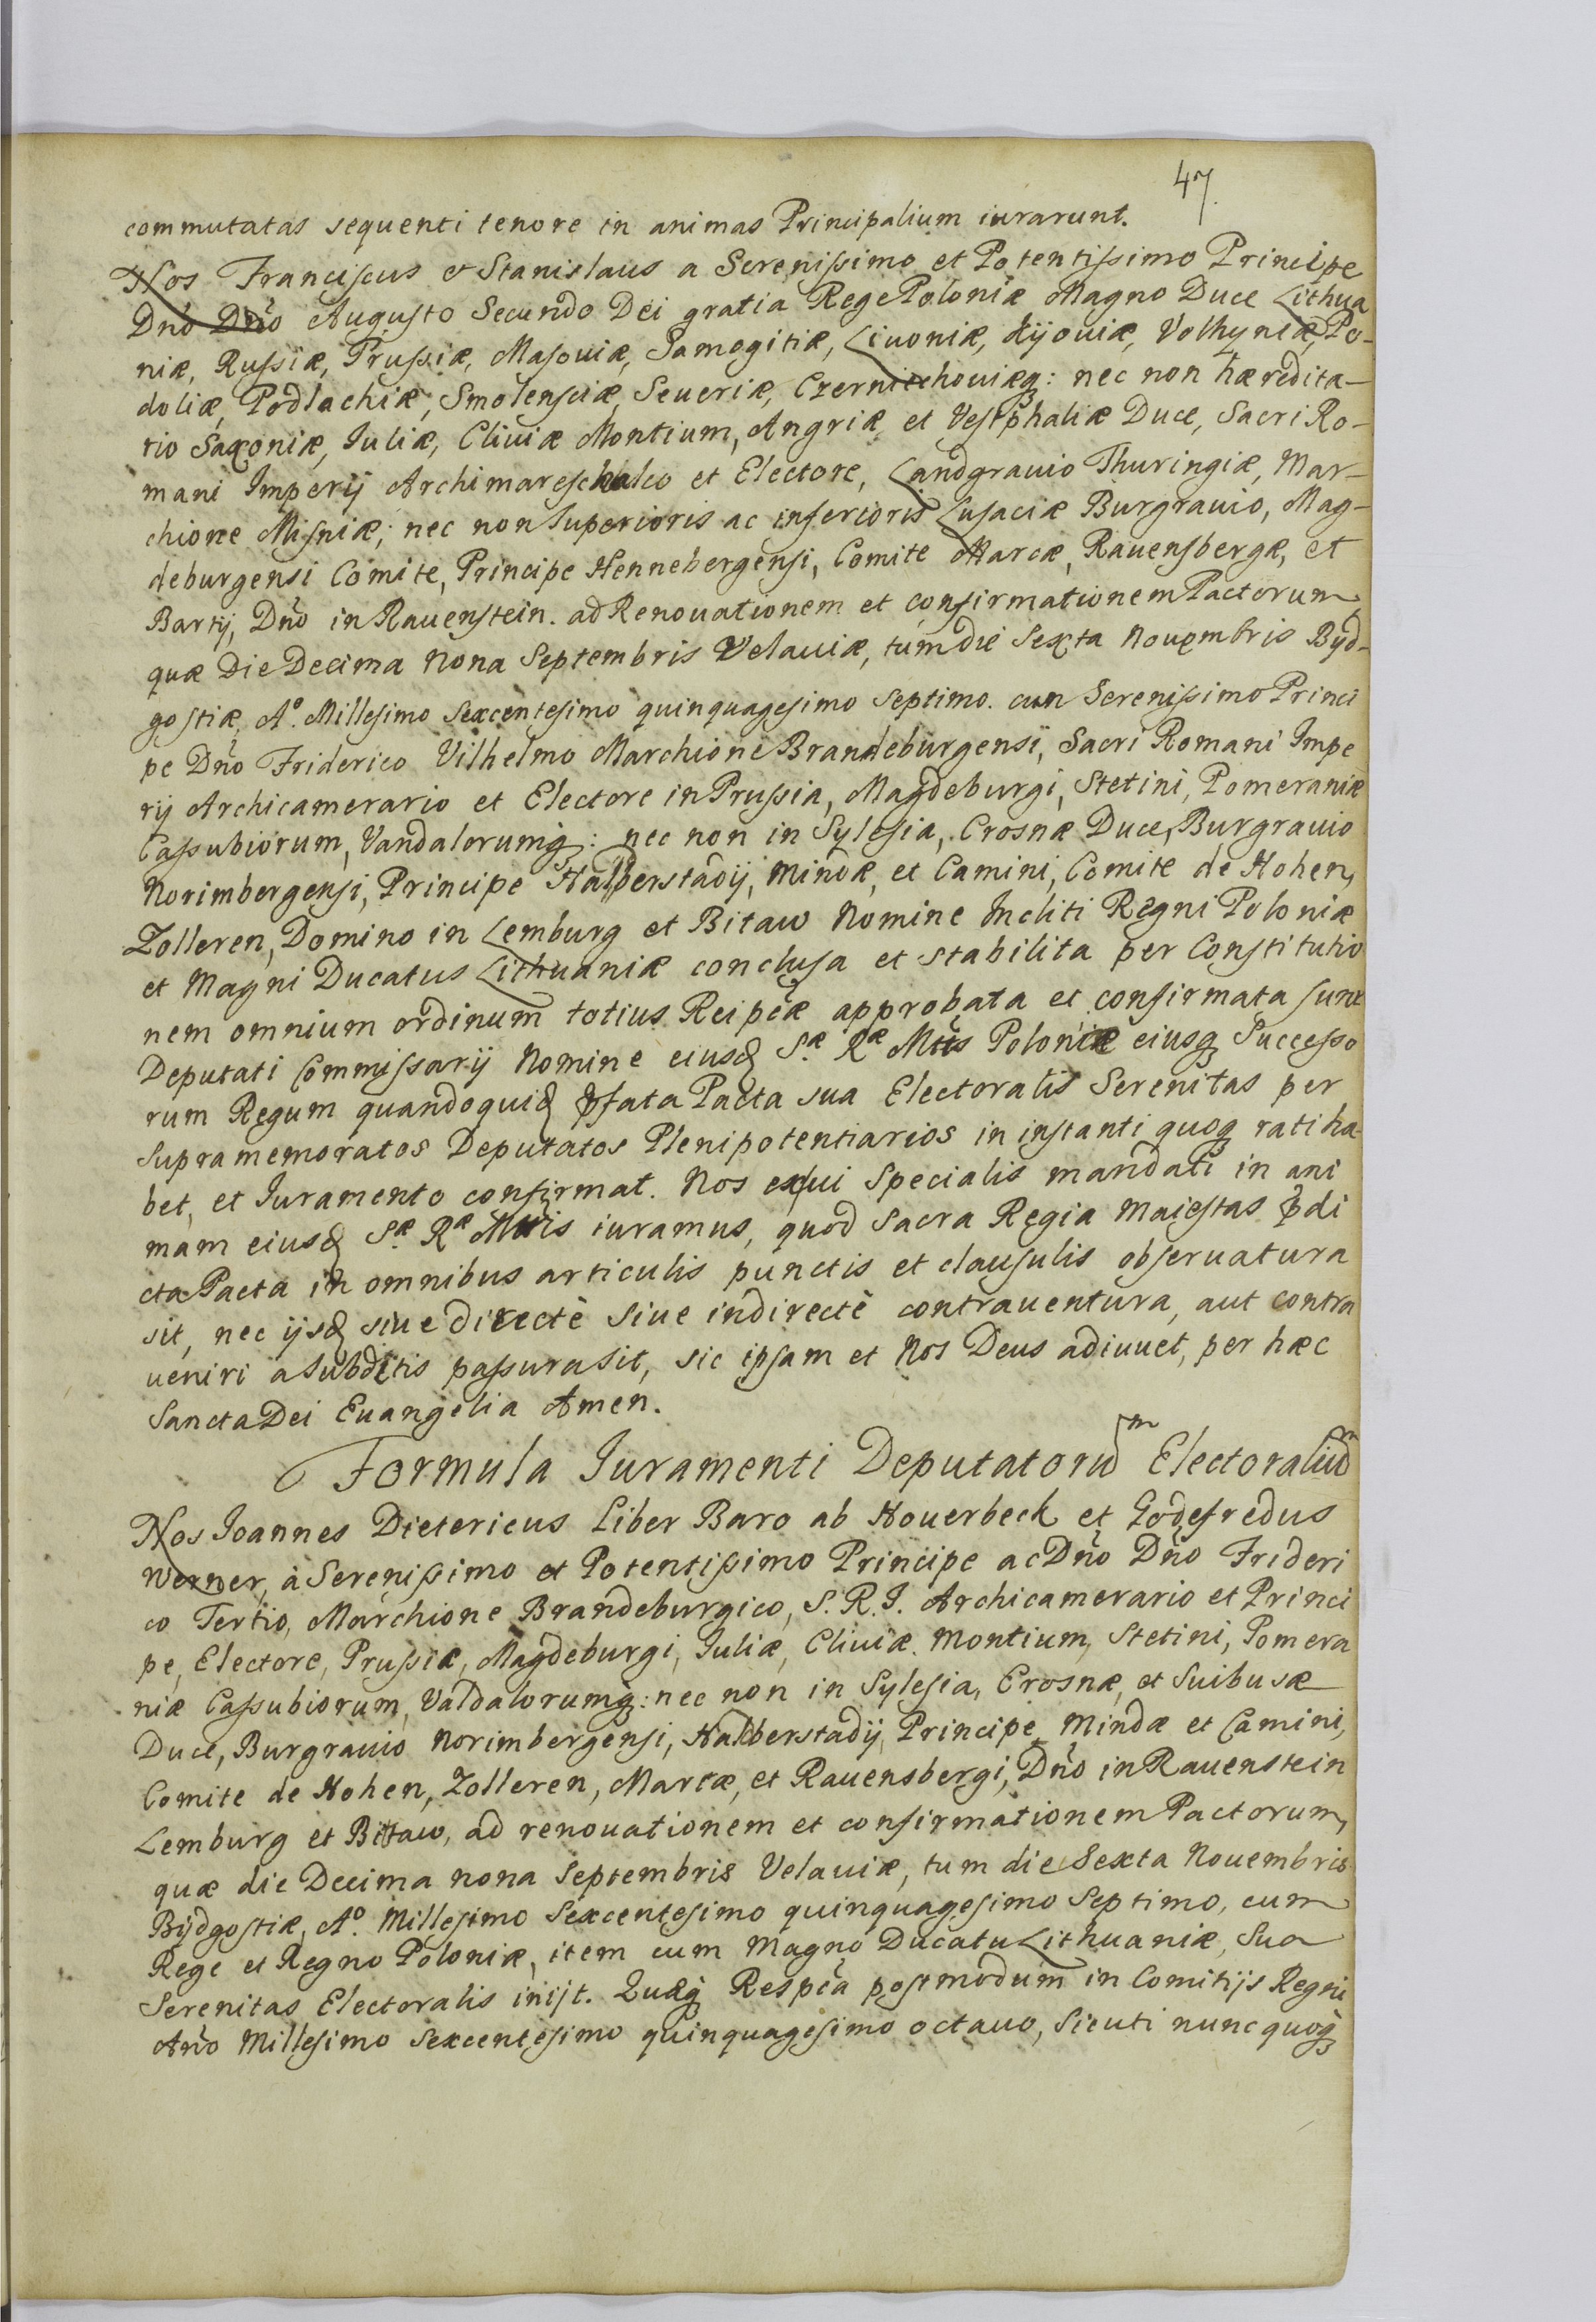 47.
commutatas sequenti tenore in animas Principalium iurarunt.
Nos Franciscus et Stanislaus a Serenissimo et Potentissimo Principe
Dn̄o Dn̄o Augusto Secundo Dei gratia Rege Poloniæ Magno Duce Lithua
niæ, Russiæ, Prussiæ, Masouiæ, Samogitiæ, Liuoniæ, Kijouiæ, Volhyniæ, Po-
doliæ, Podlachiæ, Smolensciæ, Seueriæ, Czernichouiæq: nec non hæredita-
rio Saxoniæ, Iuliæ, Cliuiæ Montium, Angriæ et Vestphaliæ Duce, Sacri Ro-
mani Imperij Archimareschalco et Electore, Landgrauio Thuringiæ, Mar-
chione Misniæ; nec non Superioris ac inferioris Lusaciæ Burgrauio, Mag-
deburgensi Comite, Principe Hennebergensi, Comite Marcæ, Rauensbergæ, et
Bartij, Dn̄o in Rauenstein. ad Renouationem et confirmationem Pactorum
quæ Die Decima Nona Septembris Velauiæ, tum die Sexta Nouembris Byd-
gostiæ, A°. Millesimo Sexcentesimo quinquagesimo septimo. cum Serenissimo Princi
pe Dn̄o Friderico Vilhelmo Marchione Brandeburgensi, Sacri Romani Impe
rij Archicamerario et Electore in Prussia, Magdeburgi, Stetini, Pomeraniæ
Cassubiorum, Vandalorumq: nec non in Sylesia, Crosnæ Duce, Burgrauio
Norimbergensi, Principe Halberstadij, Mindæ, et Camini, Comite de Hohen,
Zolleren, Domino in Lemburg et Bitaw Nomine Incliti Regni Poloniæ
et Magni Ducatus Lithuaniæ conclusa et stabilita per Constitutio
nem omnium ordinum totius Reipc̄æ approbata et confirmata sunt
Deputati Commissarij Nomine eiusd S.æ Ræ Mttis Poloniæ eiusq Successo
rum Regum quandoquid p̄fata Pacta sua Electoralis Serenitas per
supramemoratos Deputatos Plenipotentiarios in instanti quoq ratiha
bet, et Iuramento confirmat. Nos exhui Specialis mandati in ani
mam eiusd S.æ Ræ Mttis iuramus, quod Sacra Regia Maiestas p̄di
cta Pacta in omnibus articulis punctis et clausulis obseruatura
sit, nec ijsd siue directè siue indirectè contrauentura, aut contra
ueniri a Subditis passura sit, sic ipsam et Nos Deus adiuuet, per hæc
Sancta Dei Euangelia Amen.
Formula Iuramenti Deputatorum Electoralium
Nos Joannes Dietericus Liber Baro ab Houerbeck et Godefredus
Werner, à Serenissimo et Potentissimo Principe ac Dn̄o Dn̄o Frideri
co Tertio, Marchione Brandeburgico, S. R. I. Archicamerario et Princi
pe, Electore, Prussiæ, Magdeburgi, Iuliæ, Cliuiæ. Montium, Stetini, Pomera
niæ Cassubiorum, Valdalorumq: nec non in Sylesia, Crosnæ, et Suibusæ
Duce, Burgrauio Norimbergensi, Halberstadij, Principe, Mindæ et Camini,
Comite de Hohen, Zolleren, Martæ, et Rauensbergi, Dn̄o in Rauenstein
Lemburg et Bittaw, ad renouationem et confirmationem Pactorum,
quæ die Decima nona Septembris Velauiæ, tum die Sexta Nouembris
Bijdgostiæ, A°. Millesimo Sexcentesimo quinquagesimo Septimo, cum
Rege et Regno Poloniæ, item cum Magno Ducatu Lithuaniæ, Sua
Serenitas Electoralis inijt. Quæq Respc̄a postmodum in Comitijs Regni
An̄o Millesimo Sexcentesimo quinquagesimo octauo, Sicuti nunc quoq